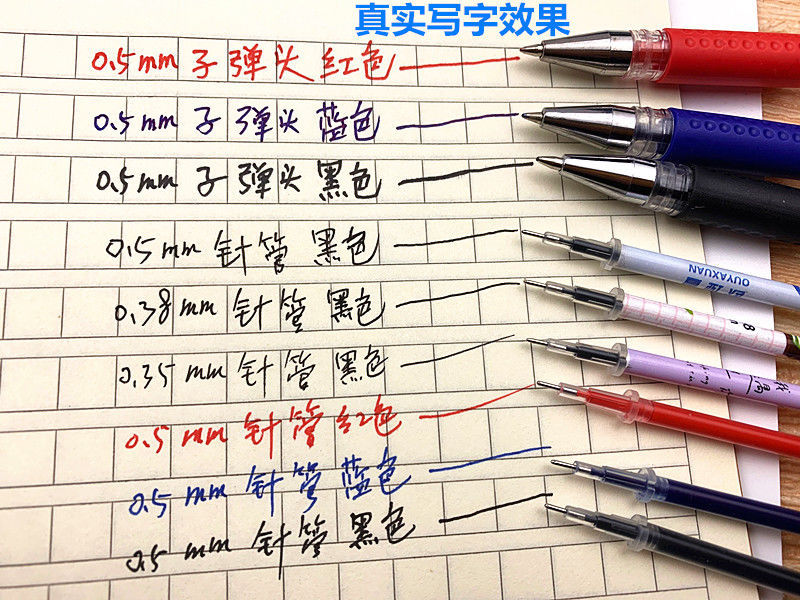 真实写字效果
0.5mm 子弹头 红色
0.5mm 子弹头 蓝色
0.5mm 子弹头 黑色
0.5mm 针管 黑色
OUYAXUAN
0.38mm 针管 黑色
8
0.35 mm 针管 黑色
0.5 mm 针管 红色
0.5 mm 针管 蓝色
0.5 mm 针管 黑色